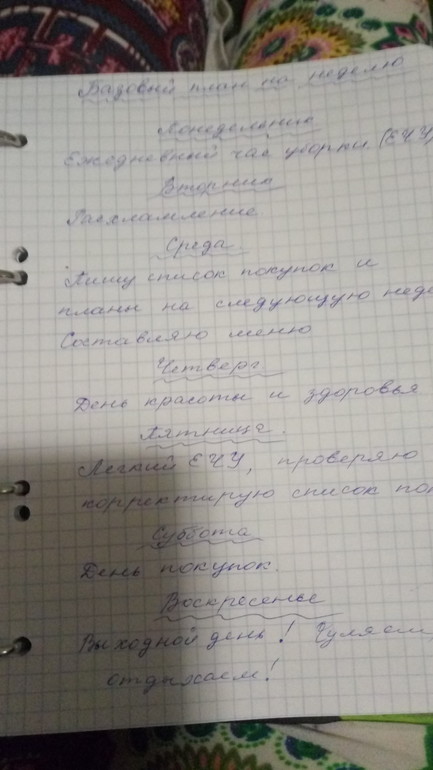 Базовый план на неделю
Понедельник
Ежедневный час уборки (ЕЧУ)
Вторник
Расхламление
Среда
Пишу список покупок и
планы на следующую неде
Составляю меню
Четверг
День красоты и здоровья
Пятница
Легкий ЕЧУ, проверяю
корректирую список пок
Суббота
День покупок.
Воскресенье
Выходной день! Гуляем,
отдыхаем!